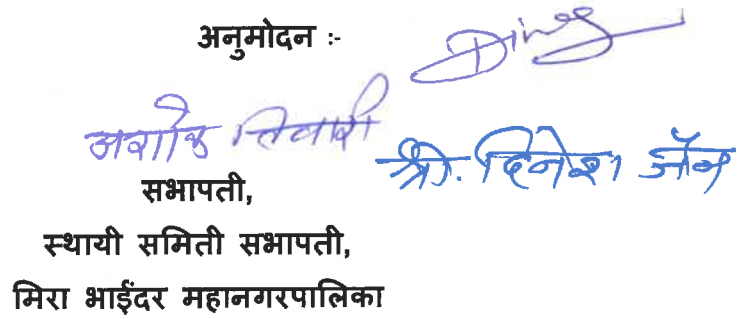 अनुमोदन :-
अशोक तिवारी
श्री. दिनेश जैन
सभापती,
स्थायी समिती सभापती,
मिरा भाईंदर महानगरपालिका